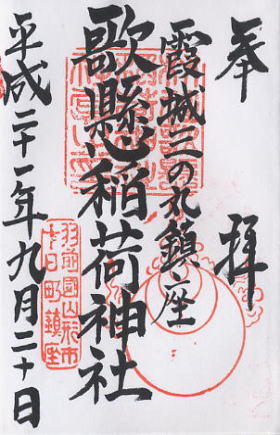 奉拝
霞城三の丸鎮座
歌懸稲荷神社
平成二十一年九月二十日
羽前國山形市
十日町鎮座